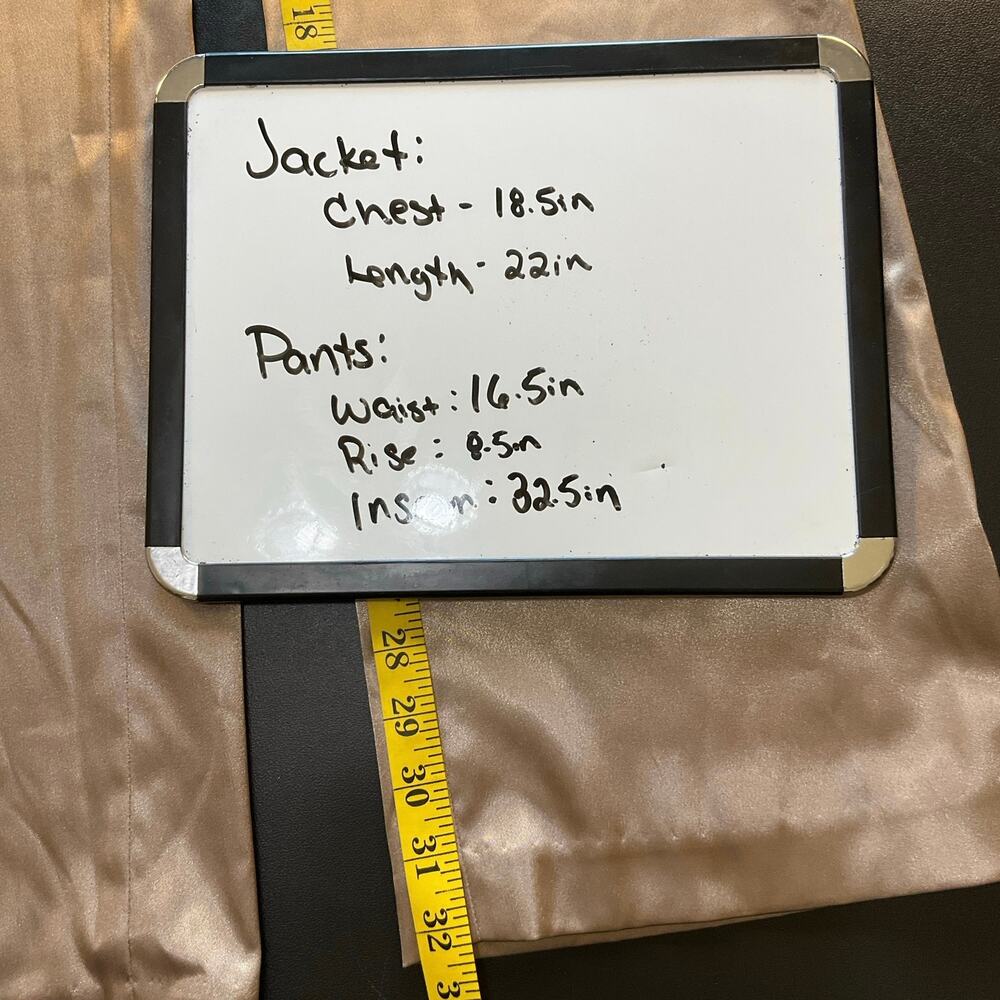 18
Jacket:
Chest - 18.5in
Length - 22in
Pants:
Waist : 16.5in
Rise : 8.5in
: 32.5in
28
29
30
31
32